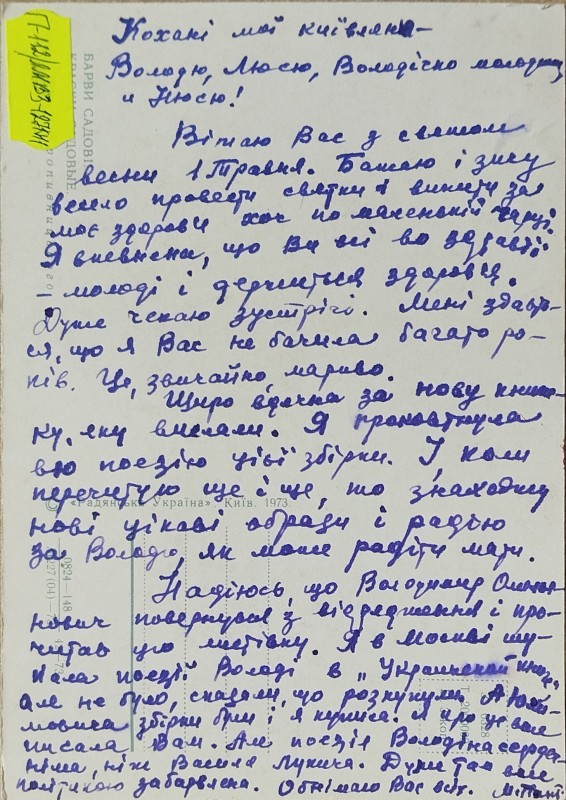 Кохані мої київляни –
Володю, Люсю, Володічко молодший
и Нюсю!
Вітаю Вас з святом
весни 1 Травня. Бажаю і зичу
весело провести святки і випити за
моє здоров'є хоч по маленькій чарці.
Я впевнена, що Ви всі во здравії
– молоді і держиться здоров'є.
Дуже чекаю зустрічі. Мені здаєть-
ся, що я Вас не бачила багато ро-
ків. Це, звичайно, мариво.
Щиро вдячна за нову книж-
ку, яку вислали. Я проковтнула
всю поезію цієї збірки. І, коли
перечитую ще і ще, то знаходжу
нові цікаві образи і радію
за Володю, як може радіти мати.
Надіюсь, що Володимир
нович повернувся з відрядження і про-
читав цю листівку. Я в Москві шу-
кала поезії Володі в „Украинской книге,
але не було, сказали, що розкупили. А
мовича збірки були і я купила. Я про це вже
писала Вам. Але поезія Володіна сердеч-
ніша, ніж Василя Лукича. Дуже там вже
політикою забарвлена. Обнімаю Вас всіх.
П-112/
БАРВИ САДОВІ
© «Радянська Україна». Київ. 1973
0824—148